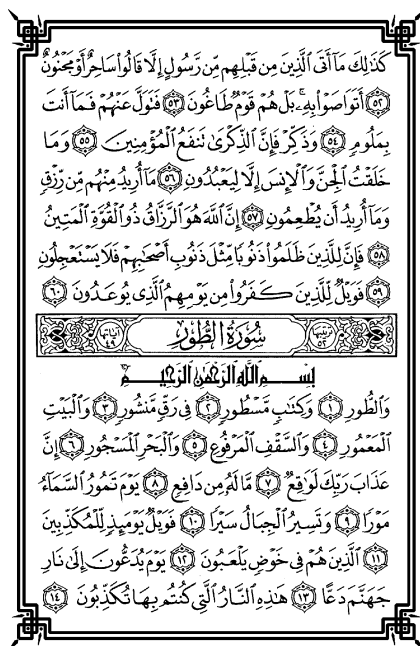 كَذَٰلِكَ مَآ أَتَى ٱلَّذِينَ مِن قَبْلِهِم مِّن رَّسُولٍ إِلَّا قَالُوا۟ سَاحِرٌ أَوْ مَجْنُونٌ
﴿٥٢﴾ أَتَوَاصَوْا۟ بِهِۦ ۚ بَلْ هُمْ قَوْمٌ طَاغُونَ ﴿٥٣﴾ فَتَوَلَّ عَنْهُمْ فَمَآ أَنتَ
بِمَلُومٍ ﴿٥٤﴾ وَذَكِّرْ فَإِنَّ ٱلذِّكْرَىٰ تَنفَعُ ٱلْمُؤْمِنِينَ ﴿٥٥﴾ وَمَا
خَلَقْتُ ٱلْجِنَّ وَٱلْإِنسَ إِلَّا لِيَعْبُدُونِ ﴿٥٦﴾ مَآ أُرِيدُ مِنْهُم مِّن رِّزْقٍ
وَمَآ أُرِيدُ أَن يُطْعِمُونِ ﴿٥٧﴾ إِنَّ ٱللَّهَ هُوَ ٱلرَّزَّاقُ ذُو ٱلْقُوَّةِ ٱلْمَتِينُ
﴿٥٨﴾ فَإِنَّ لِلَّذِينَ ظَلَمُوا۟ ذَنُوبًا مِّثْلَ ذَنُوبِ أَصْحَٰبِهِمْ فَلَا يَسْتَعْجِلُونِ
﴿٥٩﴾ فَوَيْلٌ لِّلَّذِينَ كَفَرُوا۟ مِن يَوْمِهِمُ ٱلَّذِى يُوعَدُونَ ﴿٦٠﴾
ترتيبها ٥٢ سُورَةُ الطُّورِ آياتها ٤٩
بِسْمِ ٱللَّهِ ٱلرَّحْمَٰنِ ٱلرَّحِيمِ
وَٱلطُّورِ ﴿١﴾ وَكِتَٰبٍ مَّسْطُورٍ ﴿٢﴾ فِى رَقٍّ مَّنشُورٍ ﴿٣﴾ وَٱلْبَيْتِ
ٱلْمَعْمُورِ ﴿٤﴾ وَٱلسَّقْفِ ٱلْمَرْفُوعِ ﴿٥﴾ وَٱلْبَحْرِ ٱلْمَسْجُورِ ﴿٦﴾ إِنَّ
عَذَابَ رَبِّكَ لَوَٰقِعٌ ﴿٧﴾ مَّا لَهُۥ مِن دَافِعٍ ﴿٨﴾ يَوْمَ تَمُورُ ٱلسَّمَآءُ
مَوْرًا ﴿٩﴾ وَتَسِيرُ ٱلْجِبَالُ سَيْرًا ﴿١٠﴾ فَوَيْلٌ يَوْمَئِذٍ لِّلْمُكَذِّبِينَ
﴿١١﴾ ٱلَّذِينَ هُمْ فِى خَوْضٍ يَلْعَبُونَ ﴿١٢﴾ يَوْمَ يُدَعُّونَ إِلَىٰ نَارِ
جَهَنَّمَ دَعًّا ﴿١٣﴾ هَٰذِهِ ٱلنَّارُ ٱلَّتِى كُنتُم بِهَا تُكَذِّبُونَ ﴿١٤﴾